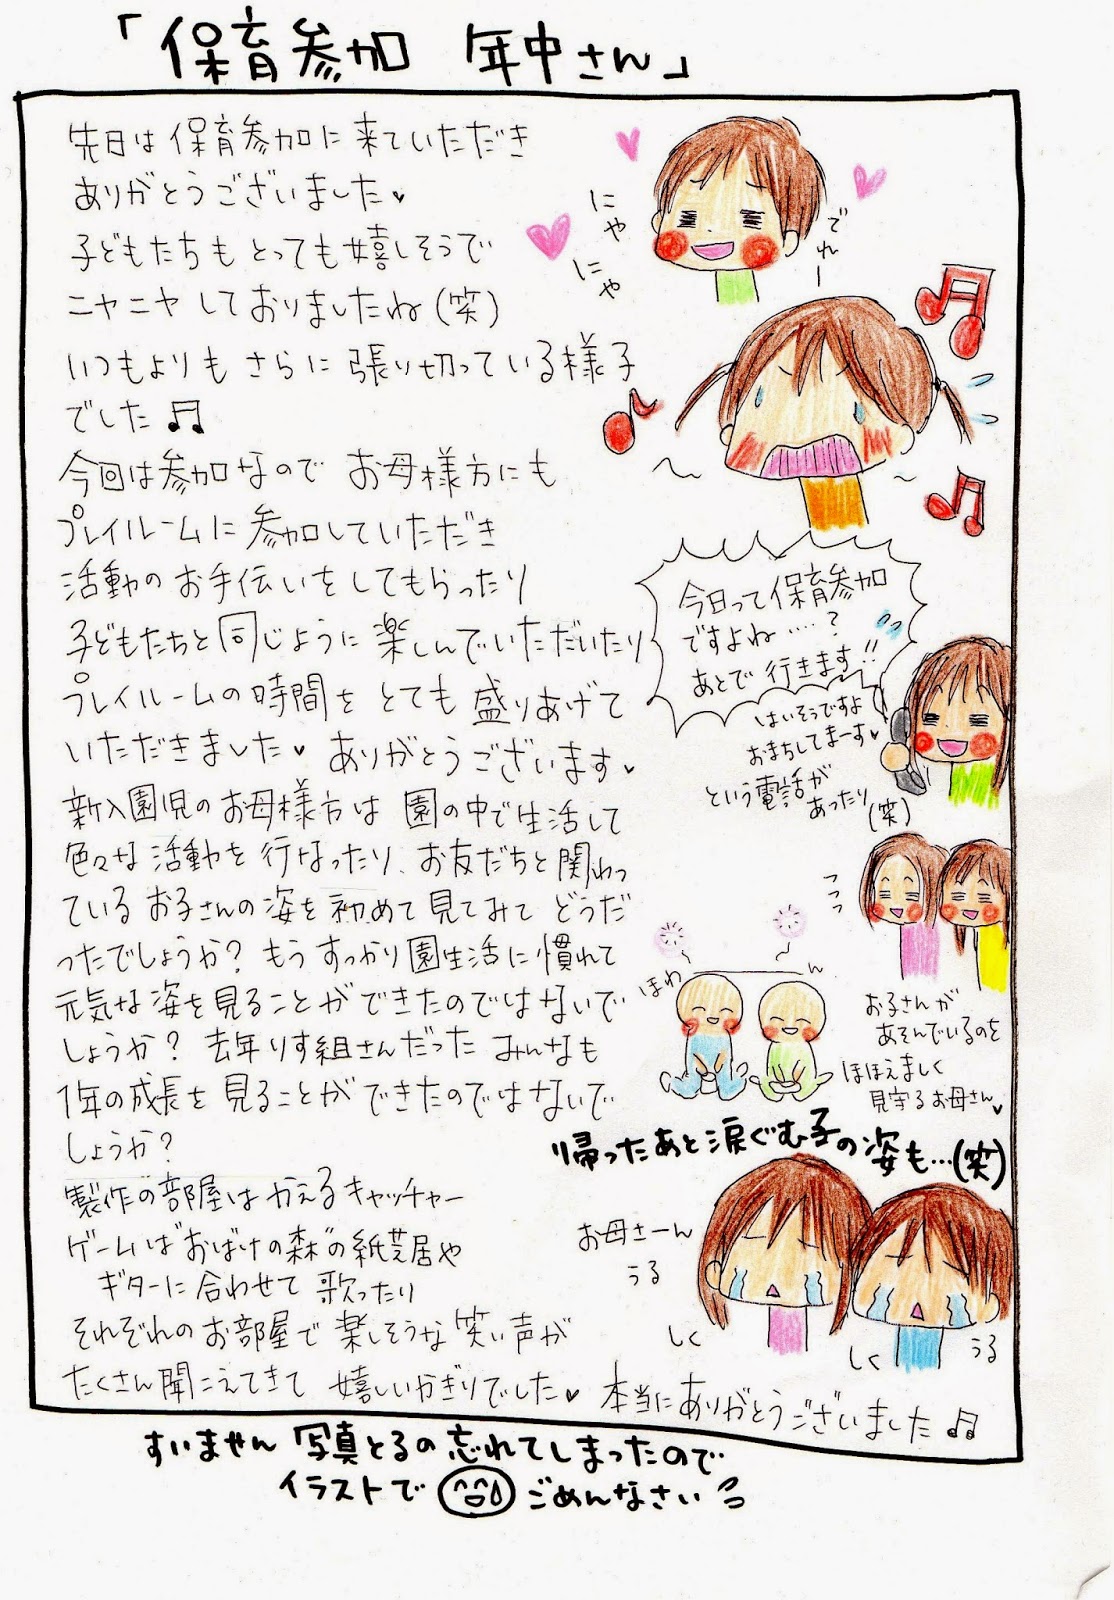 「保育参加 年中さん」
先日は保育参加に来ていただき
ありがとうございました♥
子どもたちもとっても嬉しそうで
ニヤニヤしておりましたね(笑)
いつもよりもさらに張り切っている様子
でした♫
今回は参加なのでお母様方にも
プレイルームに参加していただき
活動のお手伝いをしてもらったり
子どもたちと同じように楽しんでいただいたり
プレイルームの時間をとても盛りあげて
いただきました♥ありがとうございます♥
新入園児のお母様方は園の中で生活して
色々な活動を行なったり、お友だちと関わっ
ているお子さんの姿を初めて見てみてどうだ
ったでしょうか?もうすっかり園生活に慣れて
元気な姿を見ることができたのではないで
しょうか?去年りす組さんだったみんなも
1年の成長を見ることができたのではないで
しょうか?
製作の部屋はかえるキャッチャー
ゲームは"おばけの森"の紙芝居や
ギターに合わせて歌ったり
それぞれのお部屋で楽しそうな笑い声が
たくさん聞こえてきて嬉しいかぎりでした♥本当にありがとうございました♫
にゃ
にゃ
でれー
今日って保育参加
ですよね…?
あとで行きます!!
はいそうですよ
おまちしてまーす♥
という電話が
あったり(笑)
フフフ
ほわ
ん
お子さんが
あそんでいるのを
ほほえましく
見守るお母さん♥
帰ったあと涙ぐむ子の姿も…(笑)
お母さーん
うる
しく
しく
うる
すいません写真とるの忘れてしまったので
イラストで ごめんなさい